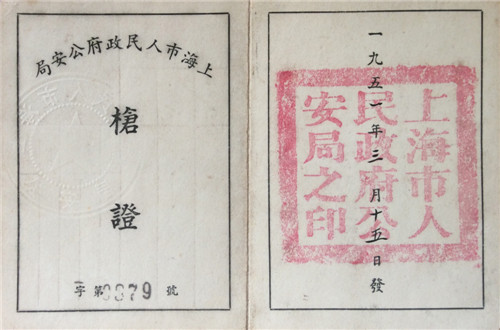 上海市人民政府公安局
槍證
字第0379號
一九五一年三月十五日發
上海市人
民政府公
安局之印